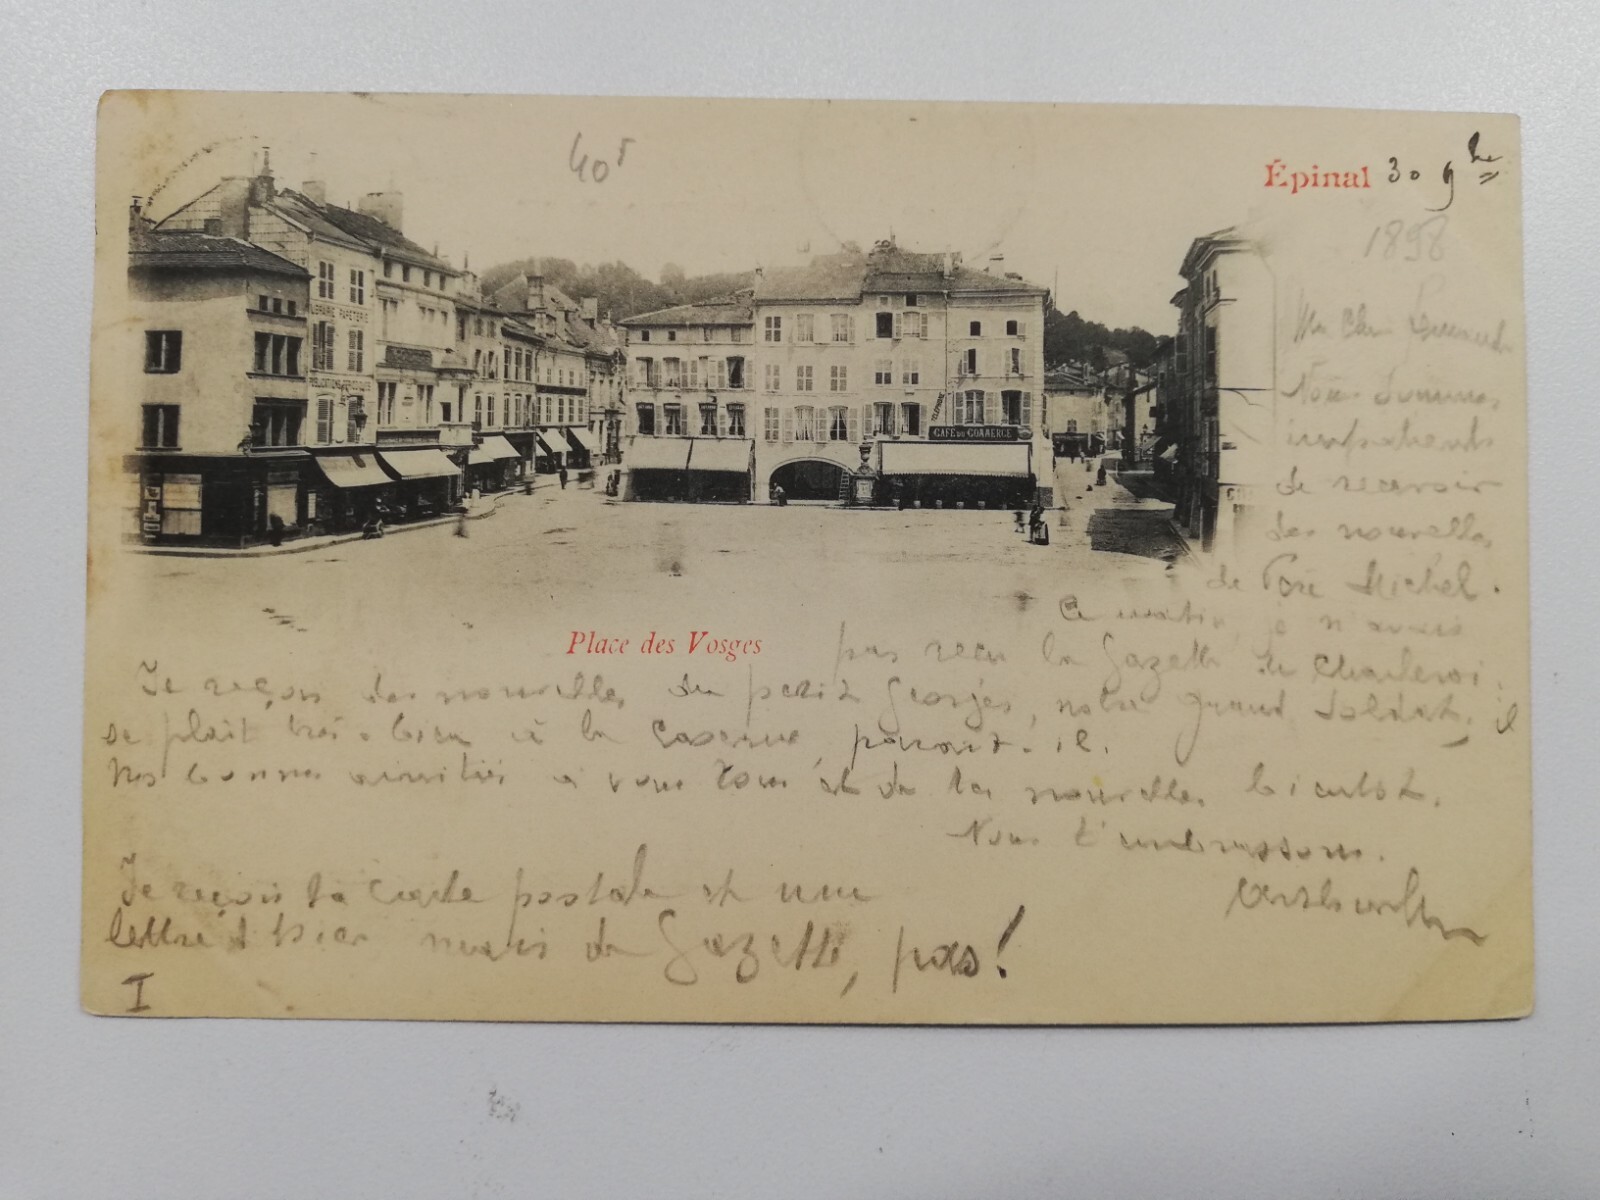 40
Épinal 30 9bre
1898
LIBRAIRIE PAPETERIE
TELEPHONE
CAFÉ DU COMMERCE
Mon Cher
Nous sommes
impatients
de recevoir
des nouvelles
de Père Michel.
Ce matin, je n'avais
Place des Vosges
pas reçu la Gazette de Charleroi.
Je reçois des nouvelles du petit Georges, notre grand soldat, il
se plait très-bien à la caserne, parait-il.
Nos bonnes amitiés à vous tous et de tes nouvelles bientôt.
Nous t'embrassons.
Je reçois ta carte postale et une
lettre d'hier mais de Gazette, pas!
I